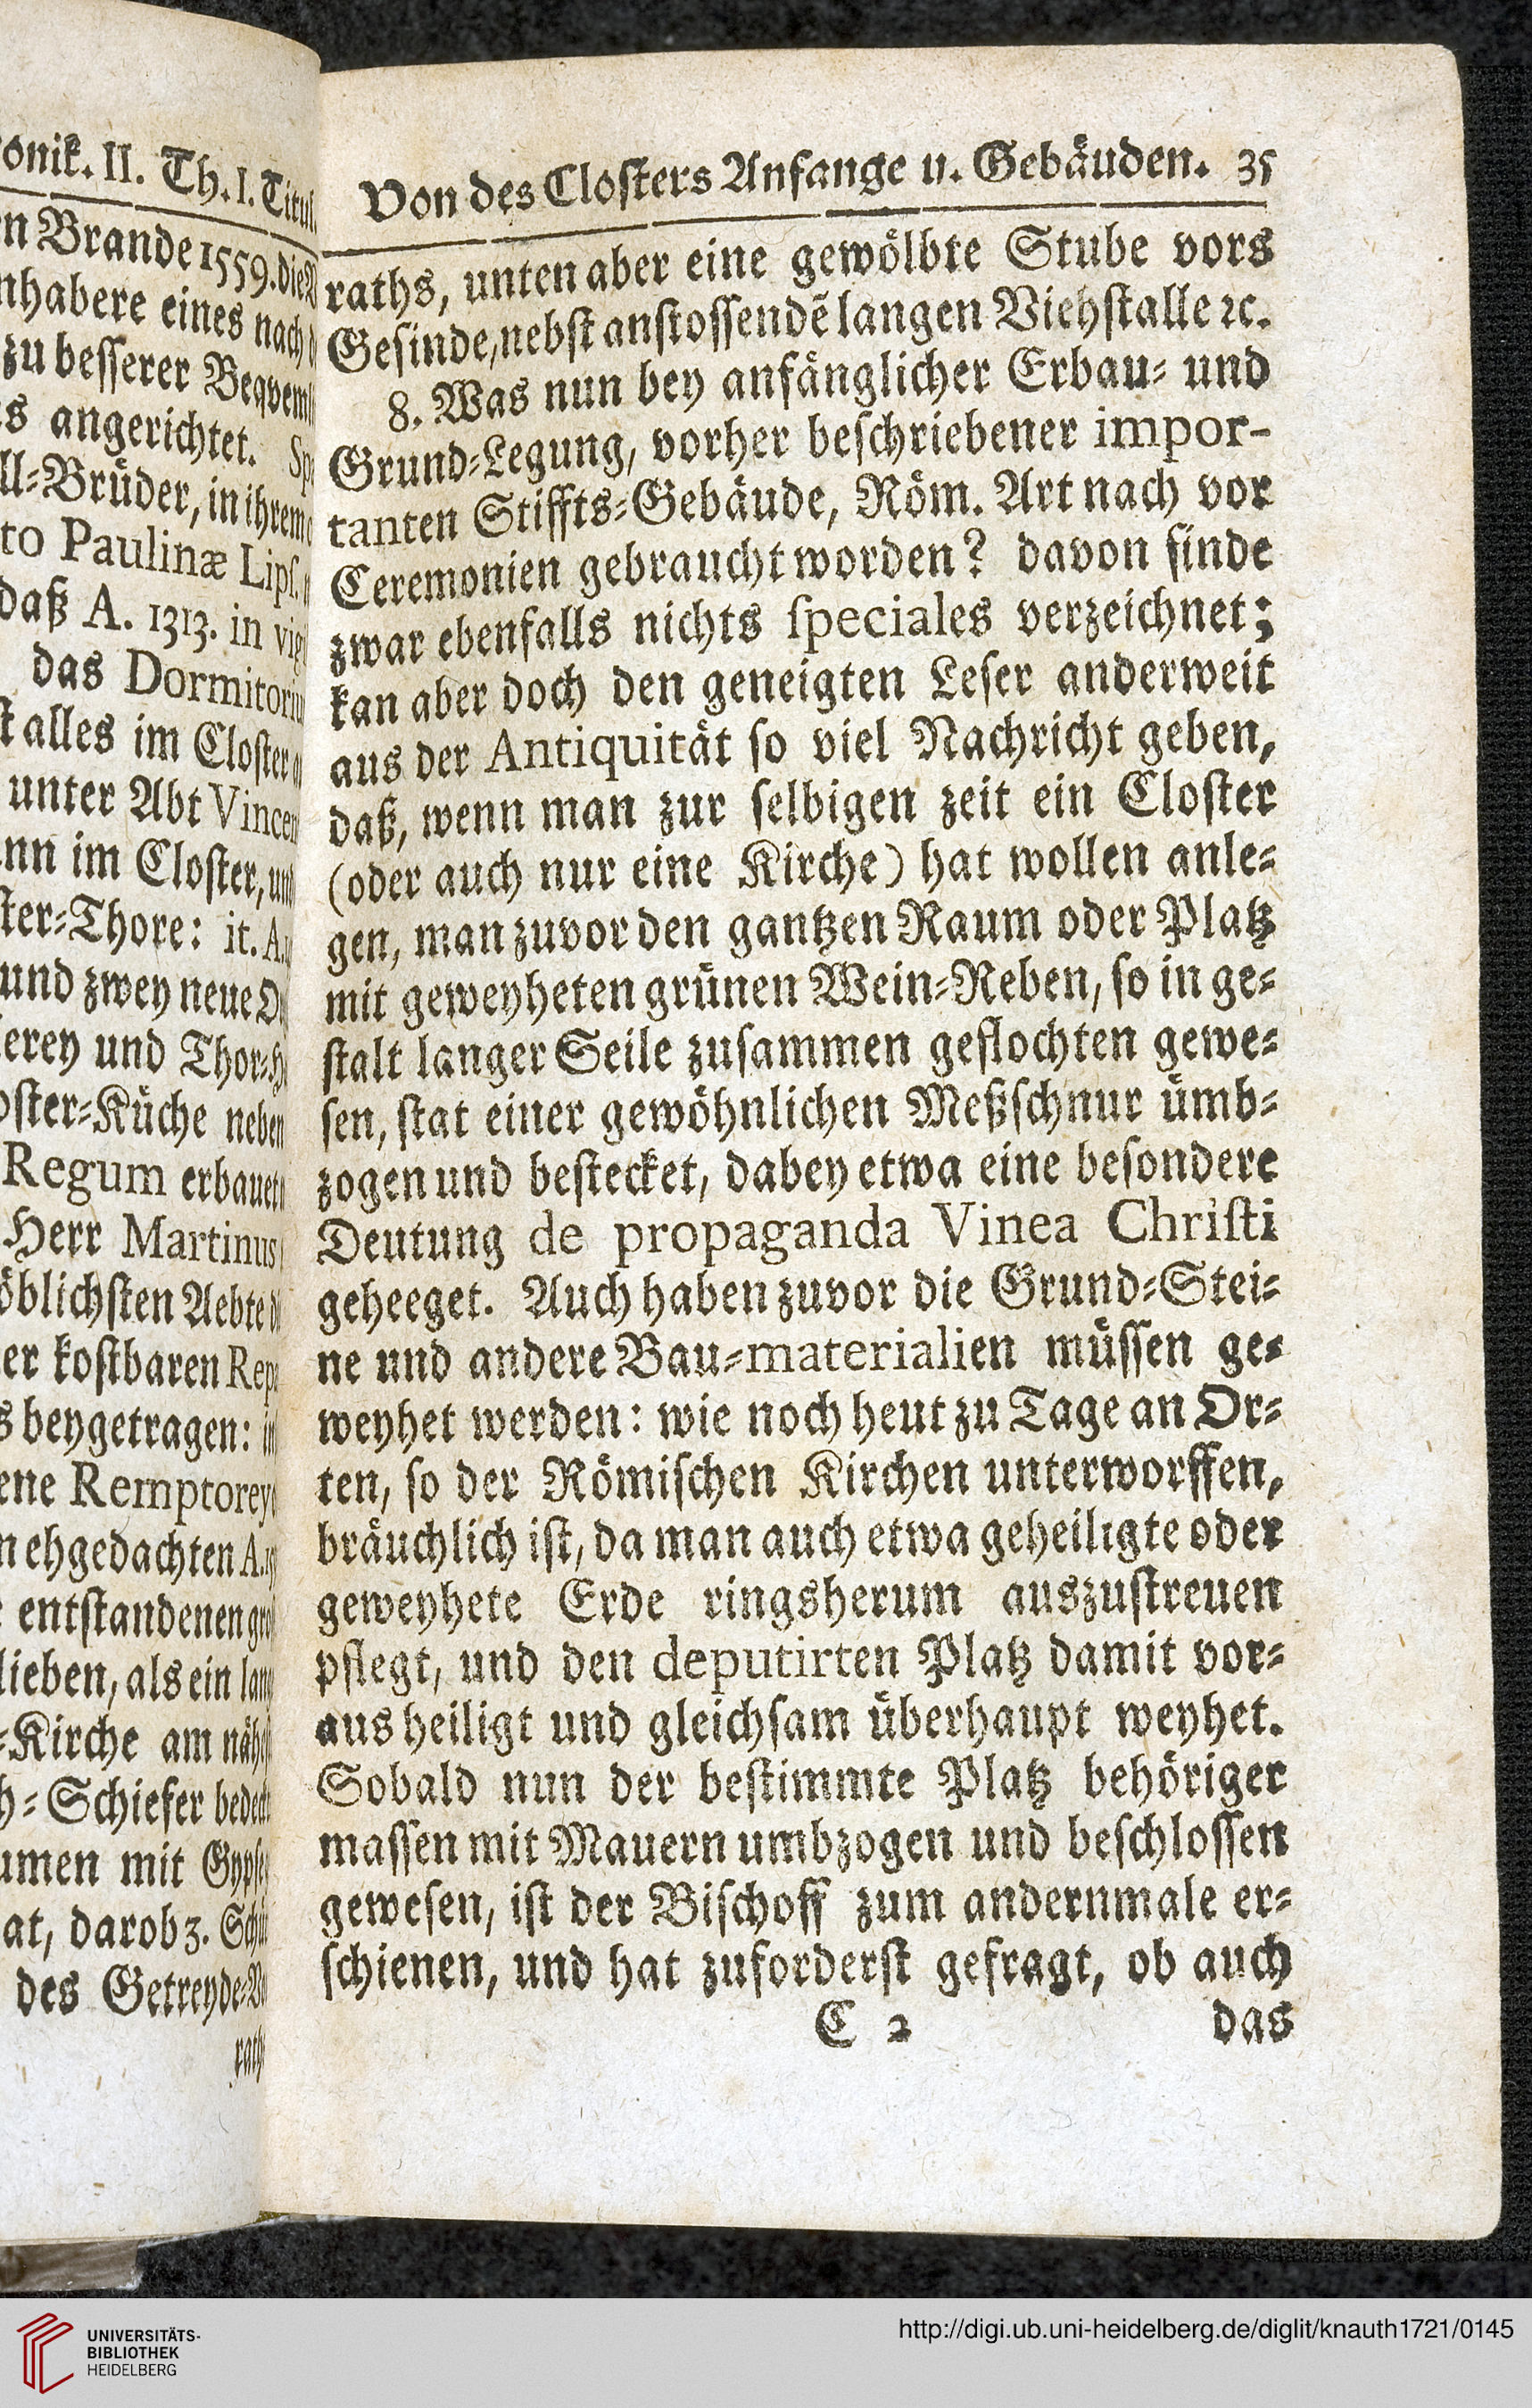 onik. II. Th. I. Titul
n Brande 1559. die
nhabere eines nach
zu besserer Beqveml
s angerichtet.
ll-Brüder, in ihrem
to Paulinæ Lips.
daß A. 1313. in vig
das Dormitoriu
t alles im Closter
unter Abt Vincen
nn im Closter, und
ster-Thore: it. A.
und zwey neue
erey und Thor-H
oster-Küche neben
Regum erbauet
Herr Martinus
öblichsten Aebte
er kostbaren Rep
s beygetragen:
ene Remptorey
n ehgedachten A.
entstandenen gro
lieben, als ein lang
-Kirche am näh
h-Schiefer bedeck
umen mit Gypse
at, darob 3. Sch
des Getreyde-
rath
Von des Closters Anfange u. Gebäuden. 35
raths, unten aber eine gewölbte Stube vors
Gesinde, nebst anstossendẽ langen Viehstalle ꝛc.
8. Was nun bey anfänglicher Erbau- und
Grund-Legung, vorher beschriebener impor-
tanten Stiffts-Gebäude, Röm. Art nach vor
Ceremonien gebraucht worden? davon finde
zwar ebenfalls nichts speciales verzeichnet;
kan aber doch den geneigten Leser anderweit
aus der Antiquität so viel Nachricht geben,
daß, wenn man zur selbigen zeit ein Closter
(oder auch nur eine Kirche) hat wollen anle-
gen, man zuvor den gantzen Raum oder Platz
mit geweyheten grünen Wein-Reben, so in ge-
stalt langer Seile zusammen geflochten gewe-
sen, stat einer gewöhnlichen Meßschnur ümb-
zogen und bestecket, dabey etwa eine besondere
Deutung de propaganda Vinea Christi
geheeget. Auch haben zuvor die Grund-Stei-
ne und andere Bau-materialien müssen ge-
weyhet werden: wie noch heut zu Tage an Or-
ten, so der Römischen Kirchen unterworffen,
bräuchlich ist, da man auch etwa geheiligte oder
geweyhete Erde ringsherum auszustreuen
pflegt, und den deputirten Platz damit vor-
aus heiligt und gleichsam überhaupt weyhet.
Sobald nun der bestimmte Platz behöriger
massen mit Mauern umbzogen und beschlossen
gewesen, ist der Bischoff zum andernmale er-
schienen, und hat zuforderst gefragt, ob auch
C 2 das
UNIVERSITÄTS-
BIBLIOTHEK
HEIDELBERG
http://digi.ub.uni-heidelberg.de/diglit/knauth1721/0145